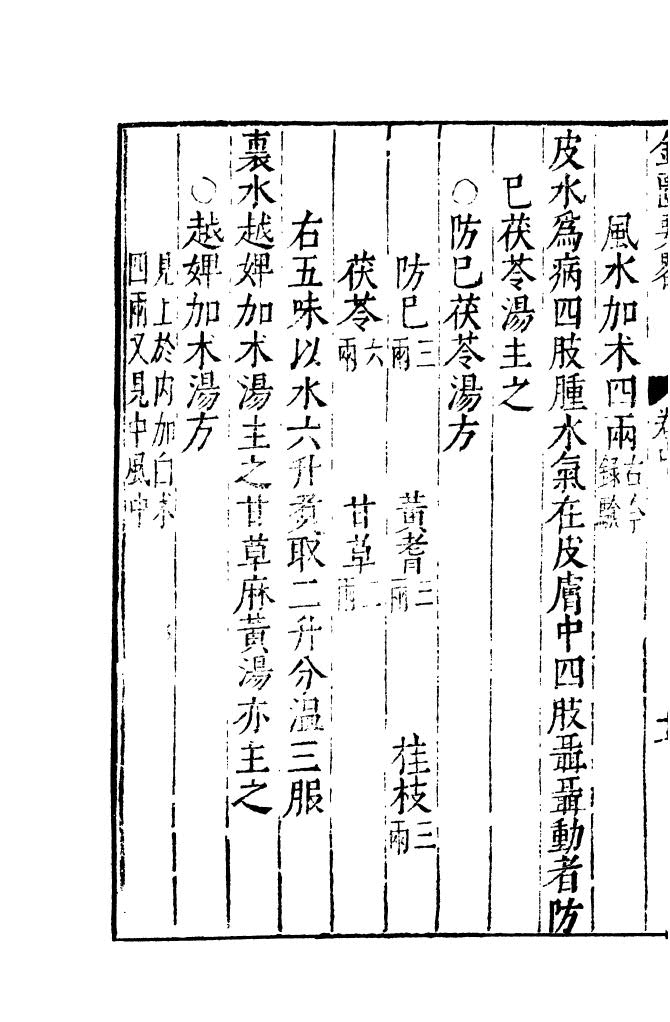 風水加朮四兩 右今錄驗
皮水為病四肢腫水氣在皮膚中四肢聶聶動者防
巳茯苓湯主之
○防巳茯苓湯方
防巳三兩 黃耆三兩 桂枝三兩
茯苓六兩 甘草二兩
右五味以水六升煑取二升分溫三服
裏水越婢加朮湯主之甘草麻黃湯亦主之
○越婢加朮湯方
見上於內加白朮四兩又見中風中